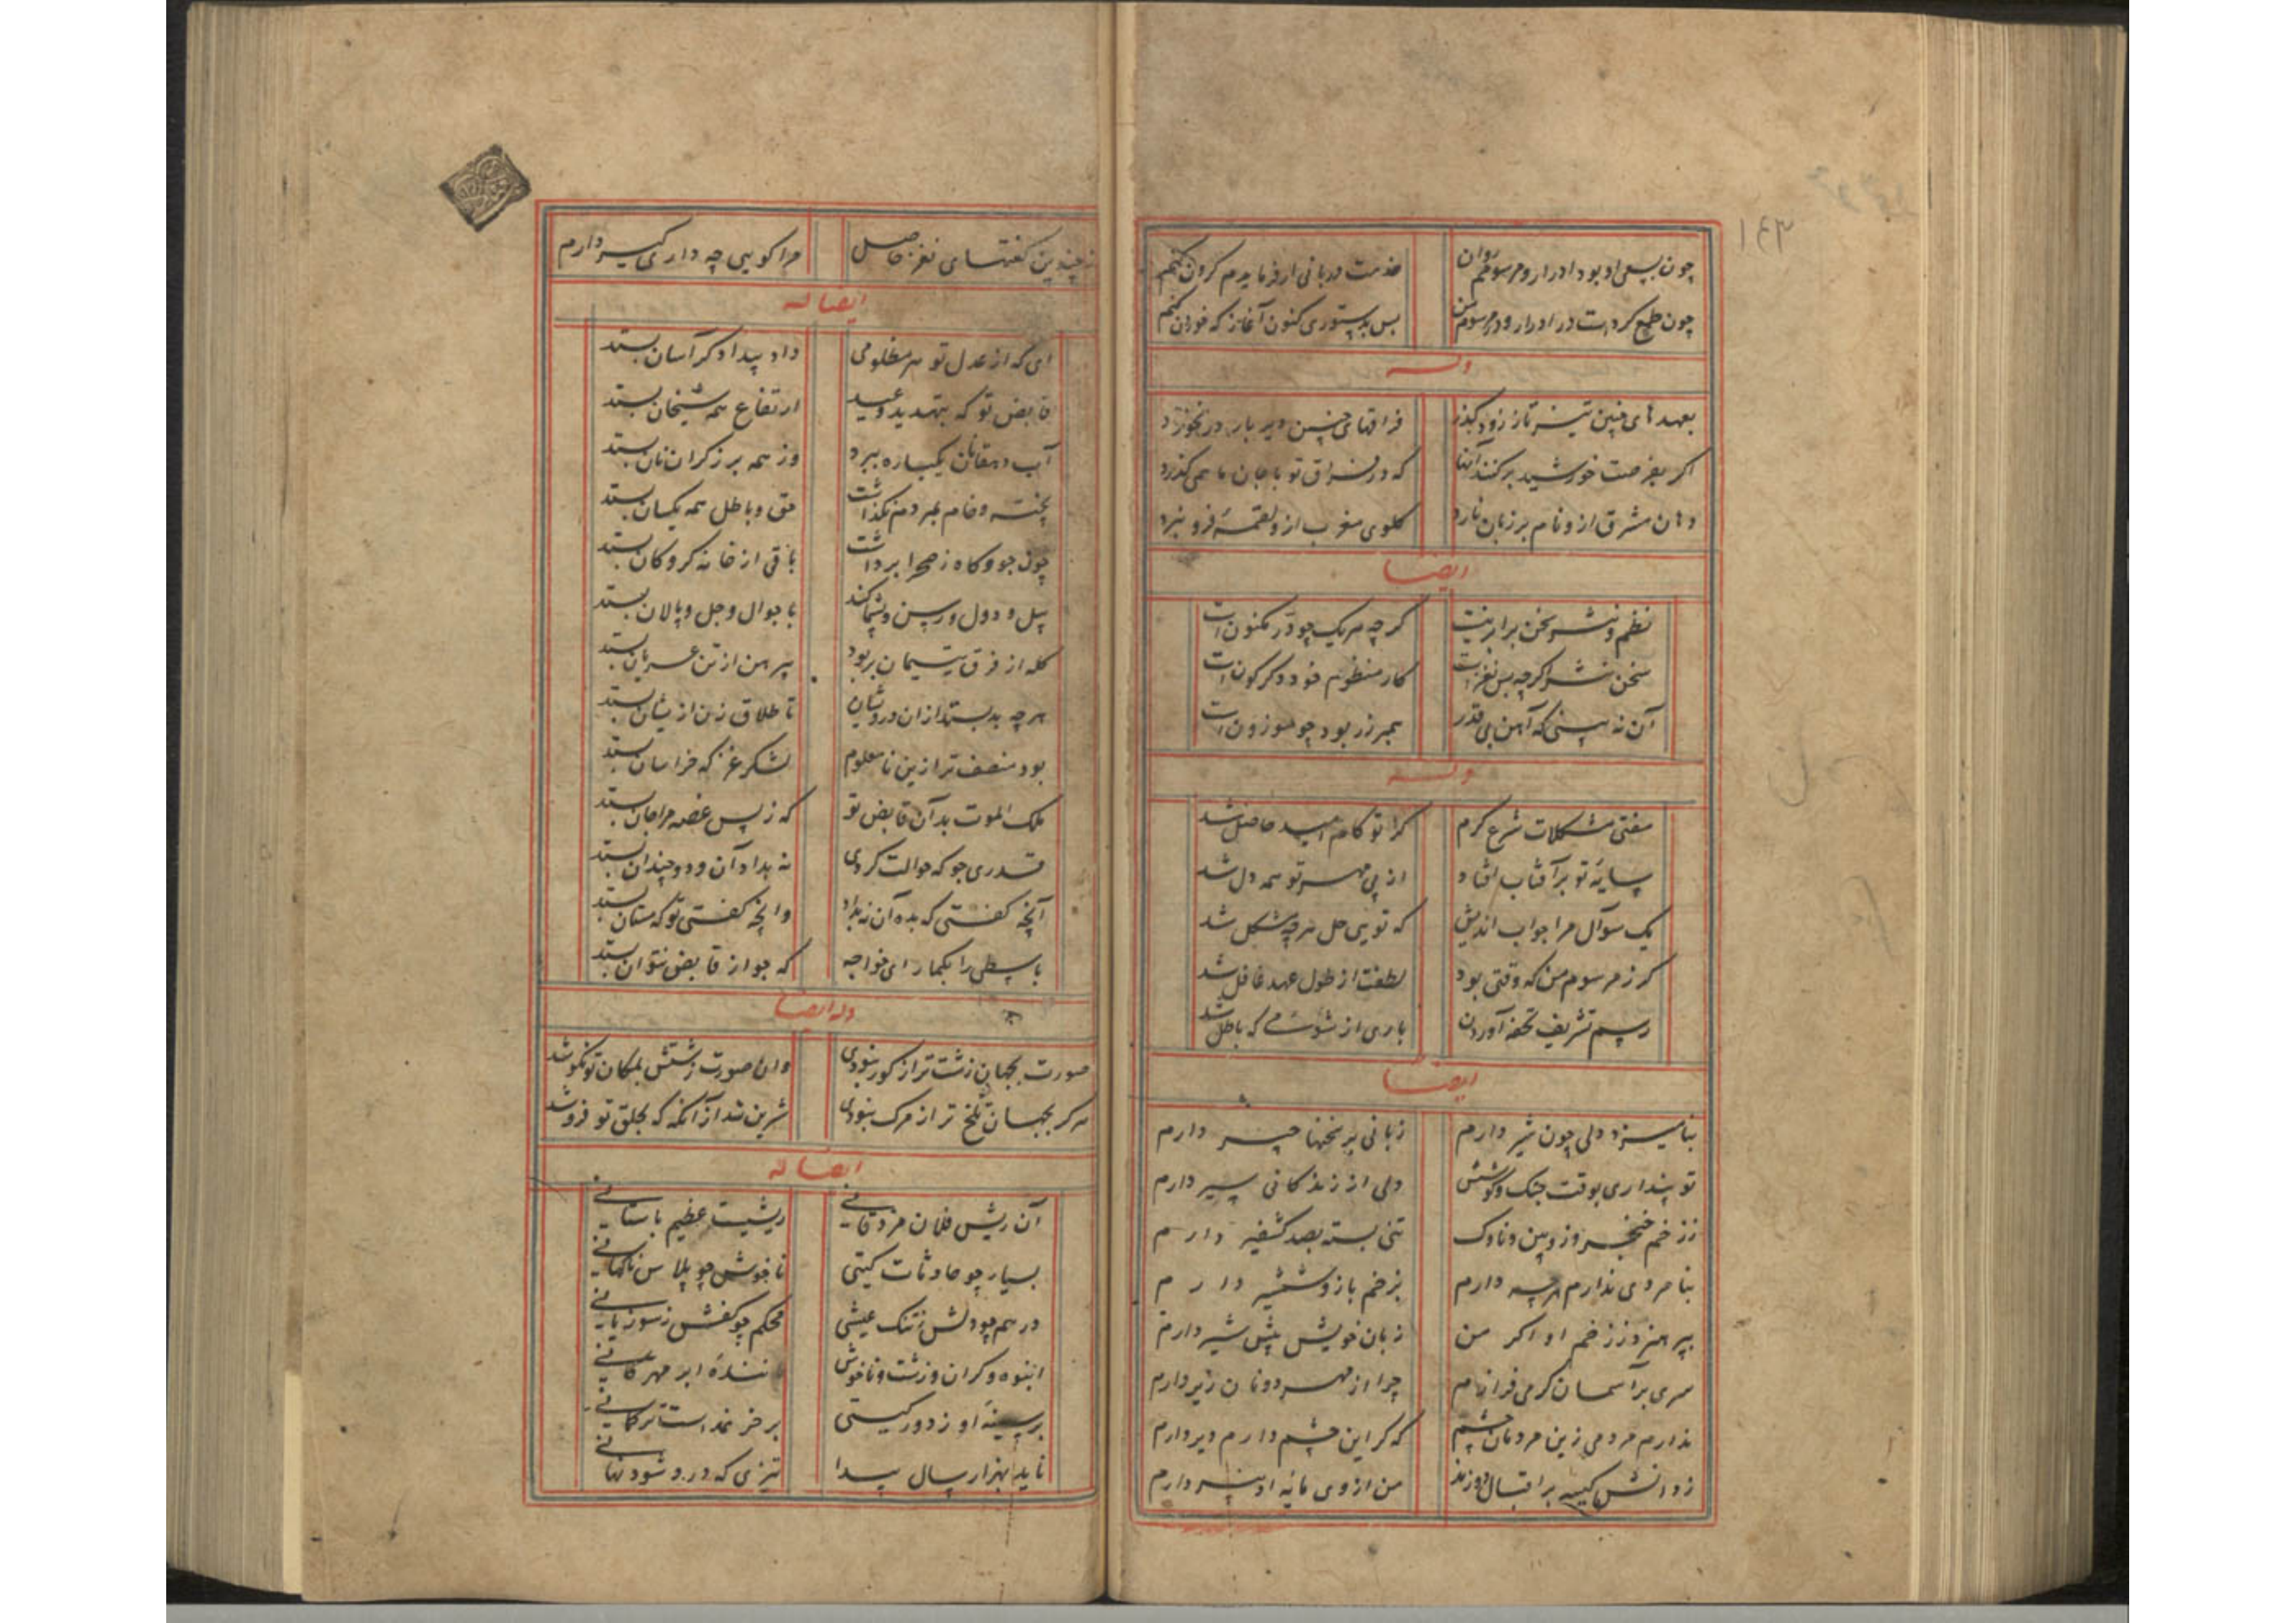 ۱۴۳
چون بسعی او بود ادرار و مرسومم روان خدمت دربانی ار فرمایدم کردن کنم
چون طمع کردست در ادرار و در مرسوم من پس بدستوری کنون آغاز که خوردن کنم
وله
بعهدهای چنین تیز تاز زود گذر فراقهای چنین دیر باز در نخورد
اگر بفرصت خورشید برکند آنها که در فراق تو با جان ما همی گذرد
دهان مشرق ازو نام بر زبان نارد گلوی مغرب ازو لقمهٔ فرو نبرد
ایضا
نظم و نثر سخن برابر نیست گرچه هریک چو در مکنون است
سخن نثر اگرچه بس نغزست کار منظوم خود دگرگون است
آن نه بینی که آهن بی قدر همبر زر بود چو موزون است
وله
مفتی مشکلات شرع کرم کز تو کام امید حاصل شد
سایهٔ تو بر آفتاب افتاد از پی مهر تو همه دل شد
یک سوآل مرا جواب اندیش که تویی حل هرچه مشکل شد
گر ز مرسوم من که وقتی بود لطفت از طول عهد غافل شد
رسم تشریف تحفه آوردن باری از شومی که باطل شد
ایضا
بنامیزد دلی چون شیر دارم زبانی پر سخنها چیر دارم
تو پنداری بوقت جنگ و کوشش دلی از زندگانی سیر دارم
ز زخم خنجر و زوبین و ناوک تنی بسته بصد کشفیر دارم
بنامردی ندارم هرچه دارم بزخم بازو و شمشیر دارم
بپرهیزد ز زخم او اگر من زبان خویش پیش شیر دارم
سری بر آسمان گر می فرازم چرا از مهر دونان زیر دارم
ندارم مردمی زین مردمان چشم که گر این چشم دارم دیر دارم
ز دانش کیسه بر اقبال دوزند من از وی مایهٔ ادبیر دارم
ز چندین گفتهای نغز حاصل مرا گویی چه داری کیر دارم
ایضا له
ای که از عدل تو هر مظلومی داد بیدادگر آسان بستد
قابض تو که بتهدید و وعید ارتفاع همه شیخان بستد
آب دهقانان یکباره ببرد وز همه برزگران نان بستد
پخته و خام بمردم نگذاشت حق و باطل همه یکسان بستد
چون جو و کاه ز صحرا برداشت باقی از خانه گروگان بستد
بیل و دول و رسن و پشماکند با جوال و جل و پالان بستد
کله از فرق یتیمان بربود پیرهن از تن عریان بستد
هرچه بد بستد ازان درویشان تا طلاق زن ازیشان بستد
بود منصف تر ازین نامعلوم لشکر غز که خراسان بستد
ملک الموت بد آن قابض تو که ز بس غصه مرا جان بستد
قدری جو که حوالت کردی نه بداد آن و دو چندان بستد
آنچه گفتی که بده آن نبداد وانچه گفتی تو که مستان بستد
باسطی را بگمار ای خواجه که جو از قابض بتوان بستد
وله ایضا
صورت بجهان زشت تر از گور نبودی وان صورت زشتش بمکان تو نکو شد
هرگز بجهان تلخ تر از مرگ نبودی شیرین شد از آنکه که بحلق تو فرو شد
ایضا له
آن ریش فلان مزدقانی ریشیست عظیم باستانی
بسیار چو حادثات گیتی ناخوش چو بلاس ناگهانی
درهم چو دلش ز تنگ عیشی محکم چو کفش ز سوزیانی
انبوه و گران و زشت و ناخوش مانندهٔ ابر مهرگانی
بر سینهٔ او ز دور گیتی بر خر نمد است ترکمانی
ناید بهزار سال پیدا تیزی که درو شود نهانی